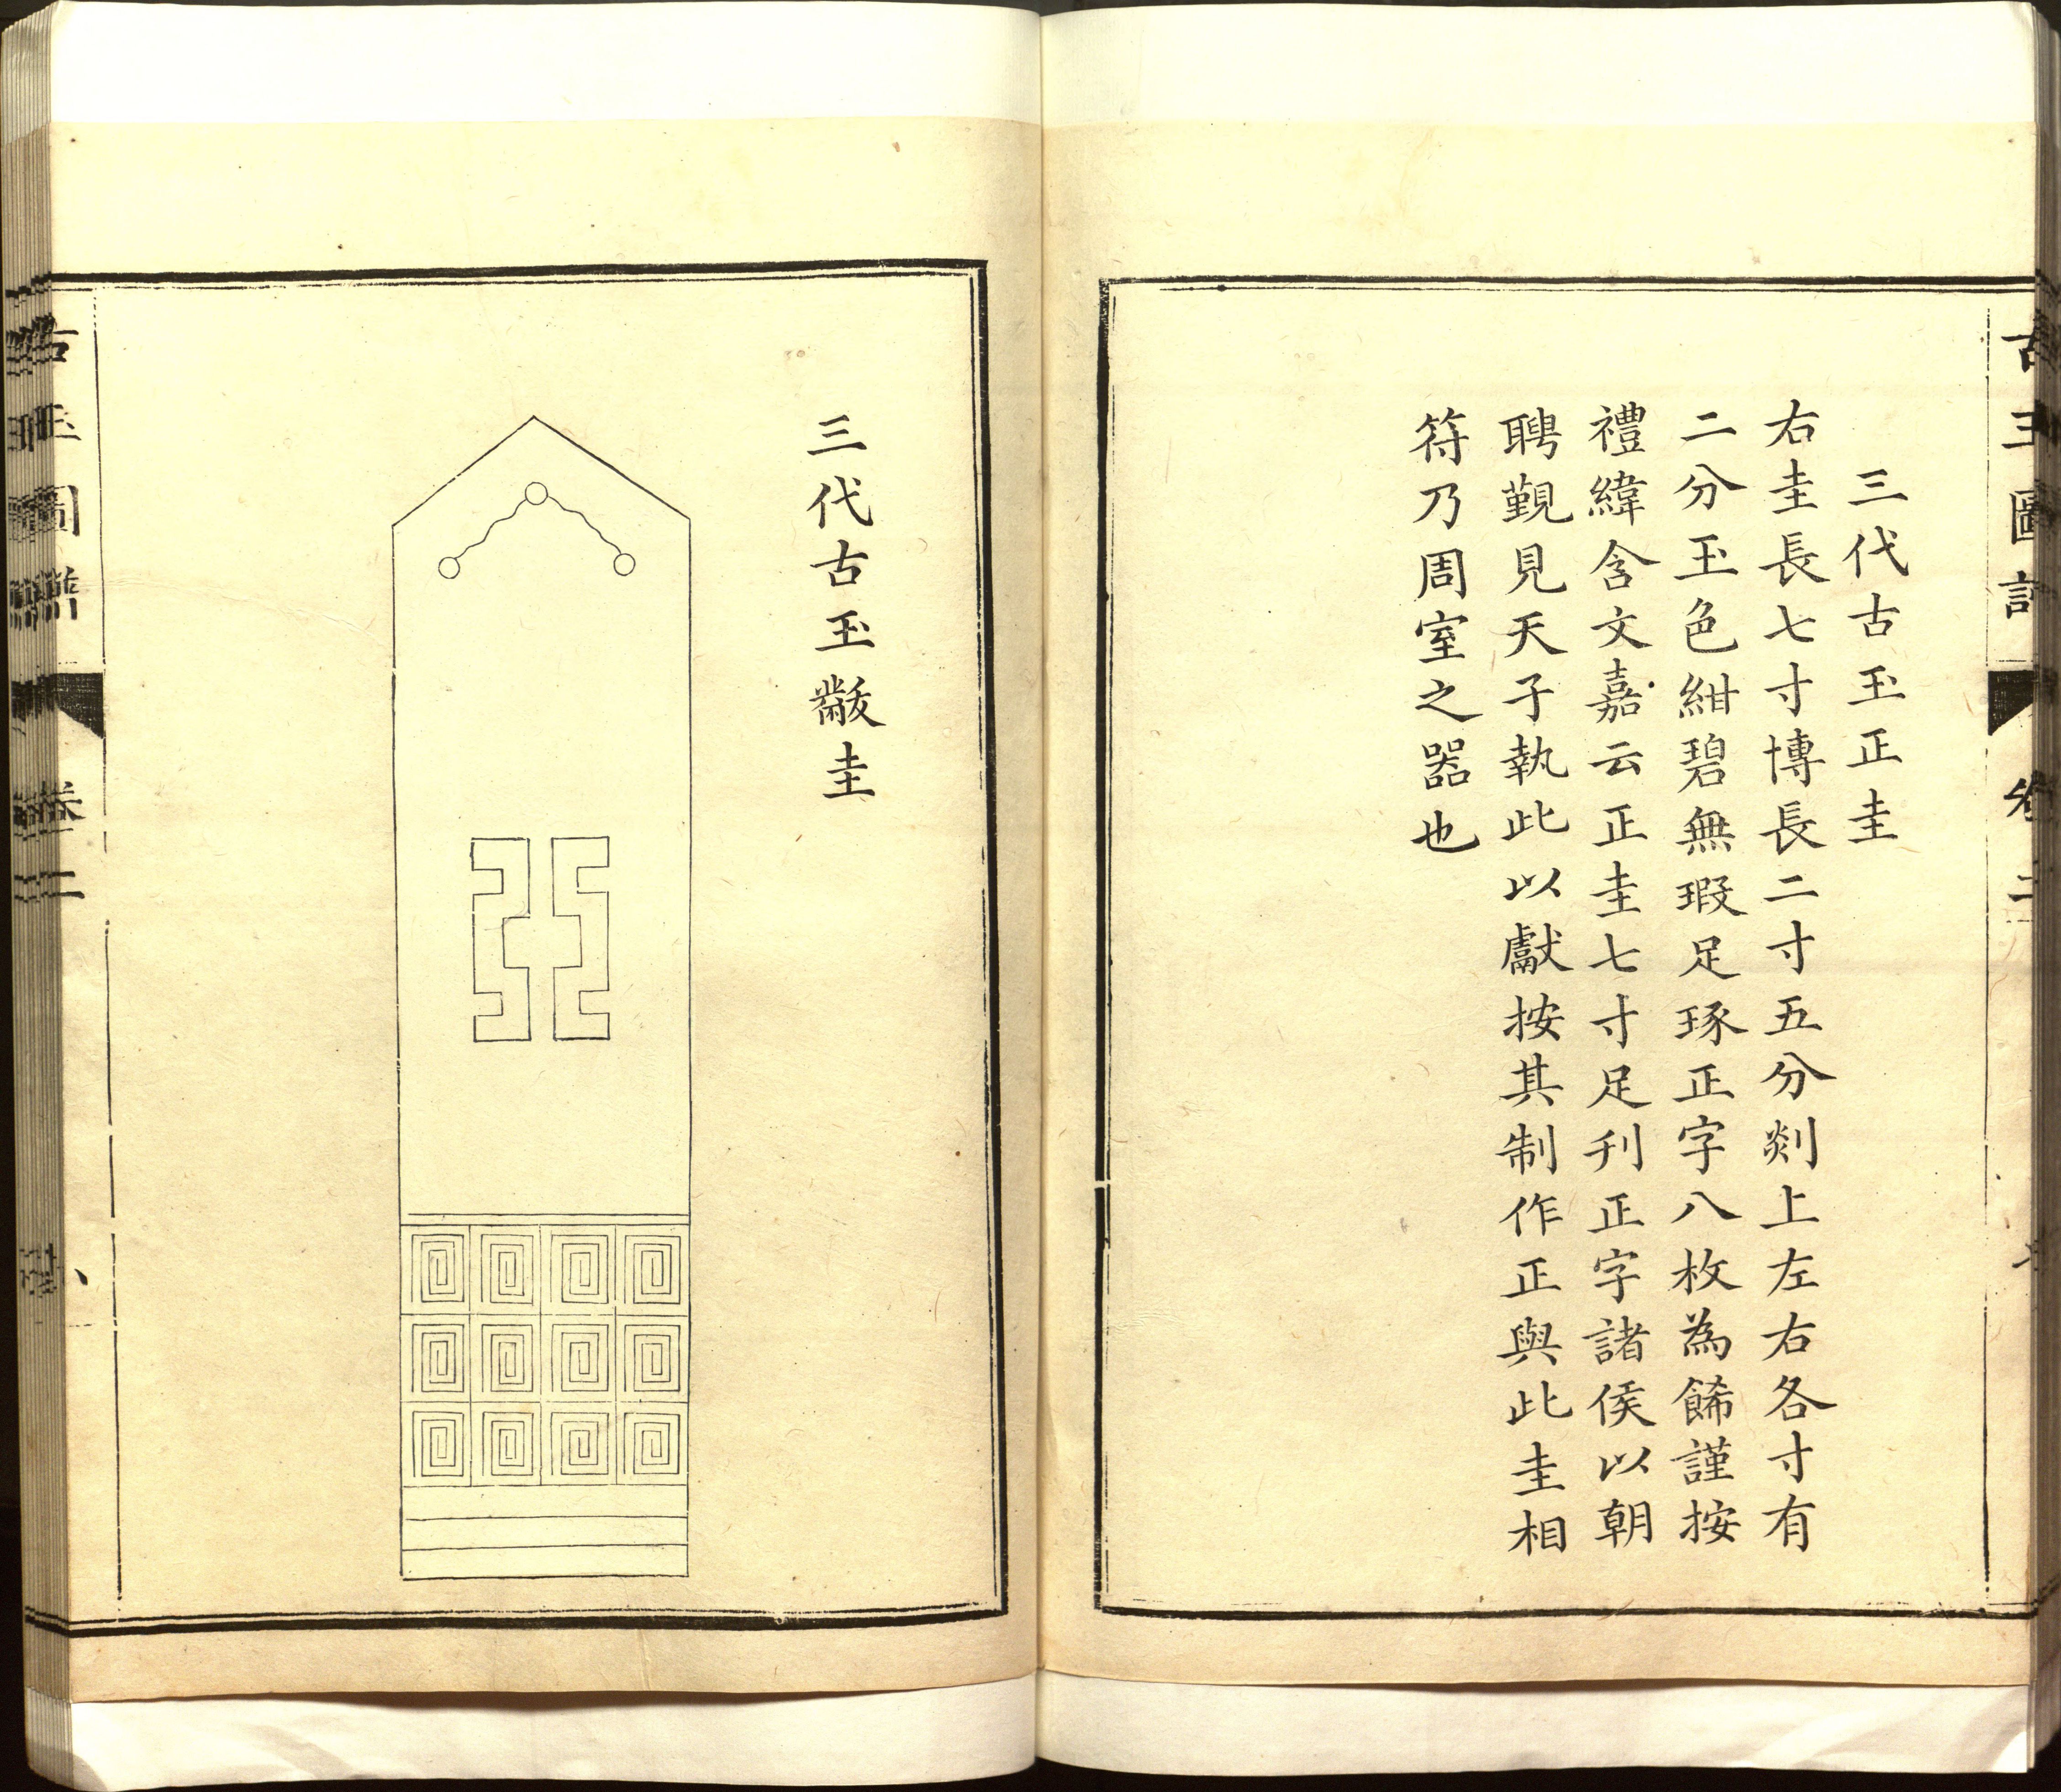 三代古玉正圭
右圭長七寸博長二寸五分剡上左右各寸有
二分玉色紺碧無瑕足琢正字八枚為餙謹按
禮緯含文嘉云正圭七寸足刋正字諸侯以朝
聘覲見天子執此以獻按其制作正與此圭相
符乃周室之器也
三代古玉黻圭
古玉圖譜
卷二